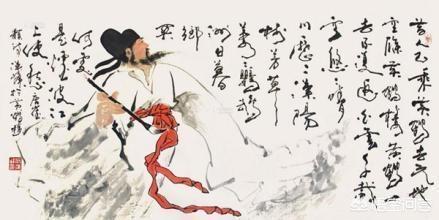 昔人已乘黄鹤去此地
空餘黄鹤楼黄鹤一
去不復返白雲千載
空悠悠晴
川歷歷漢陽
樹芳草
萋萋鸚鵡
洲日暮
鄉
関
何處
是煙波江
上使人愁唐崔